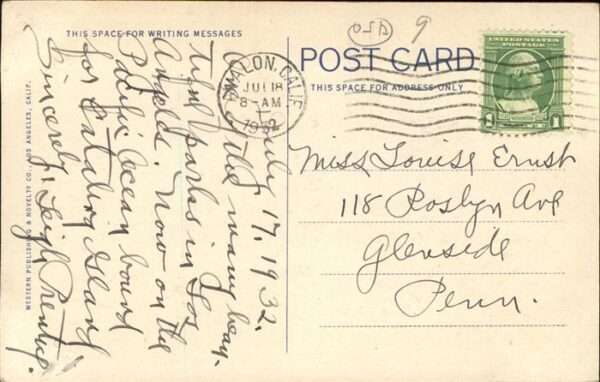 THIS SPACE FOR WRITING MESSAGES
July 17, 1932.
One of the many beau-
tiful parks in Los
Angeles. Now on the
Pacific Ocean bound
for Catalina Island
Sincerely, Leigh
WESTERN PUBLISHING & NOVELTY CO., LOS ANGELES, CALIF.
OSA 9
POST CARD
THIS SPACE FOR ADDRESS ONLY
AVALON, CALIF.
JUL 18
8-AM
1932
UNITED STATES
POSTAGE
1 1
Miss Louise Ernst
118 Roslyn Ave
Glenside
Penn.